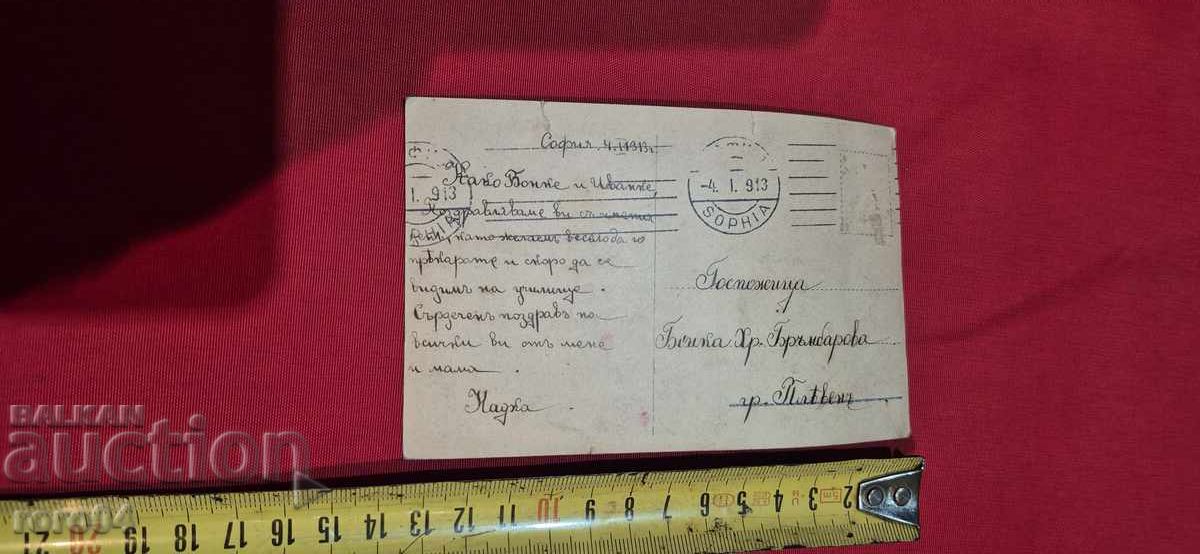 София 4.I.1913г.
Како Бонке и Иванке,
Поздравляваме ви съ имения
день, като желаемъ весело да го
прѣкарате и скоро да се
видимъ на училище.
Сърдеченъ поздравъ на
всички ви отъ мене
и мама.
Надка
1. 913
-4. I. 913
SOPHIA
Госпожица
Бонка Хр. Бръмбарова
гр. Плѣвенъ
BALKAN
auction
roro94
21 20 19 18 17 16 15 14 13 12 11 10 9 8 7 6 5 4 3 2
5m